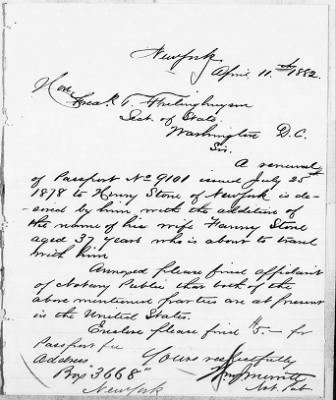 New York
April 11th 1882.
Hon.
Fredk. T. Frelinghuysen
Sect. of State.
Washington D.C.
Sir.
A renewal
of Passport No 9101 issued July 25th
1878 to Henry Stone of New York is de-
sered by him with the addition of
the name of his wife Fanny Stone
aged 37 years who is about to travel
with him
Annexed please find affidavit
of Notary Public that both of the
above mentioned parties are at present
in the United States.
Enclose please find $5– for
Passport fee
Yours respectfully
Address
Box "3668"
Merritt
New York
Not. Pub.